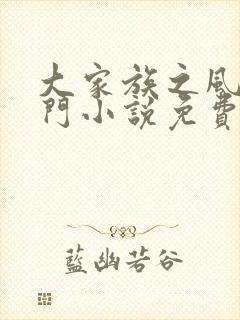 大家族之風
門小說免費
藍幽若谷